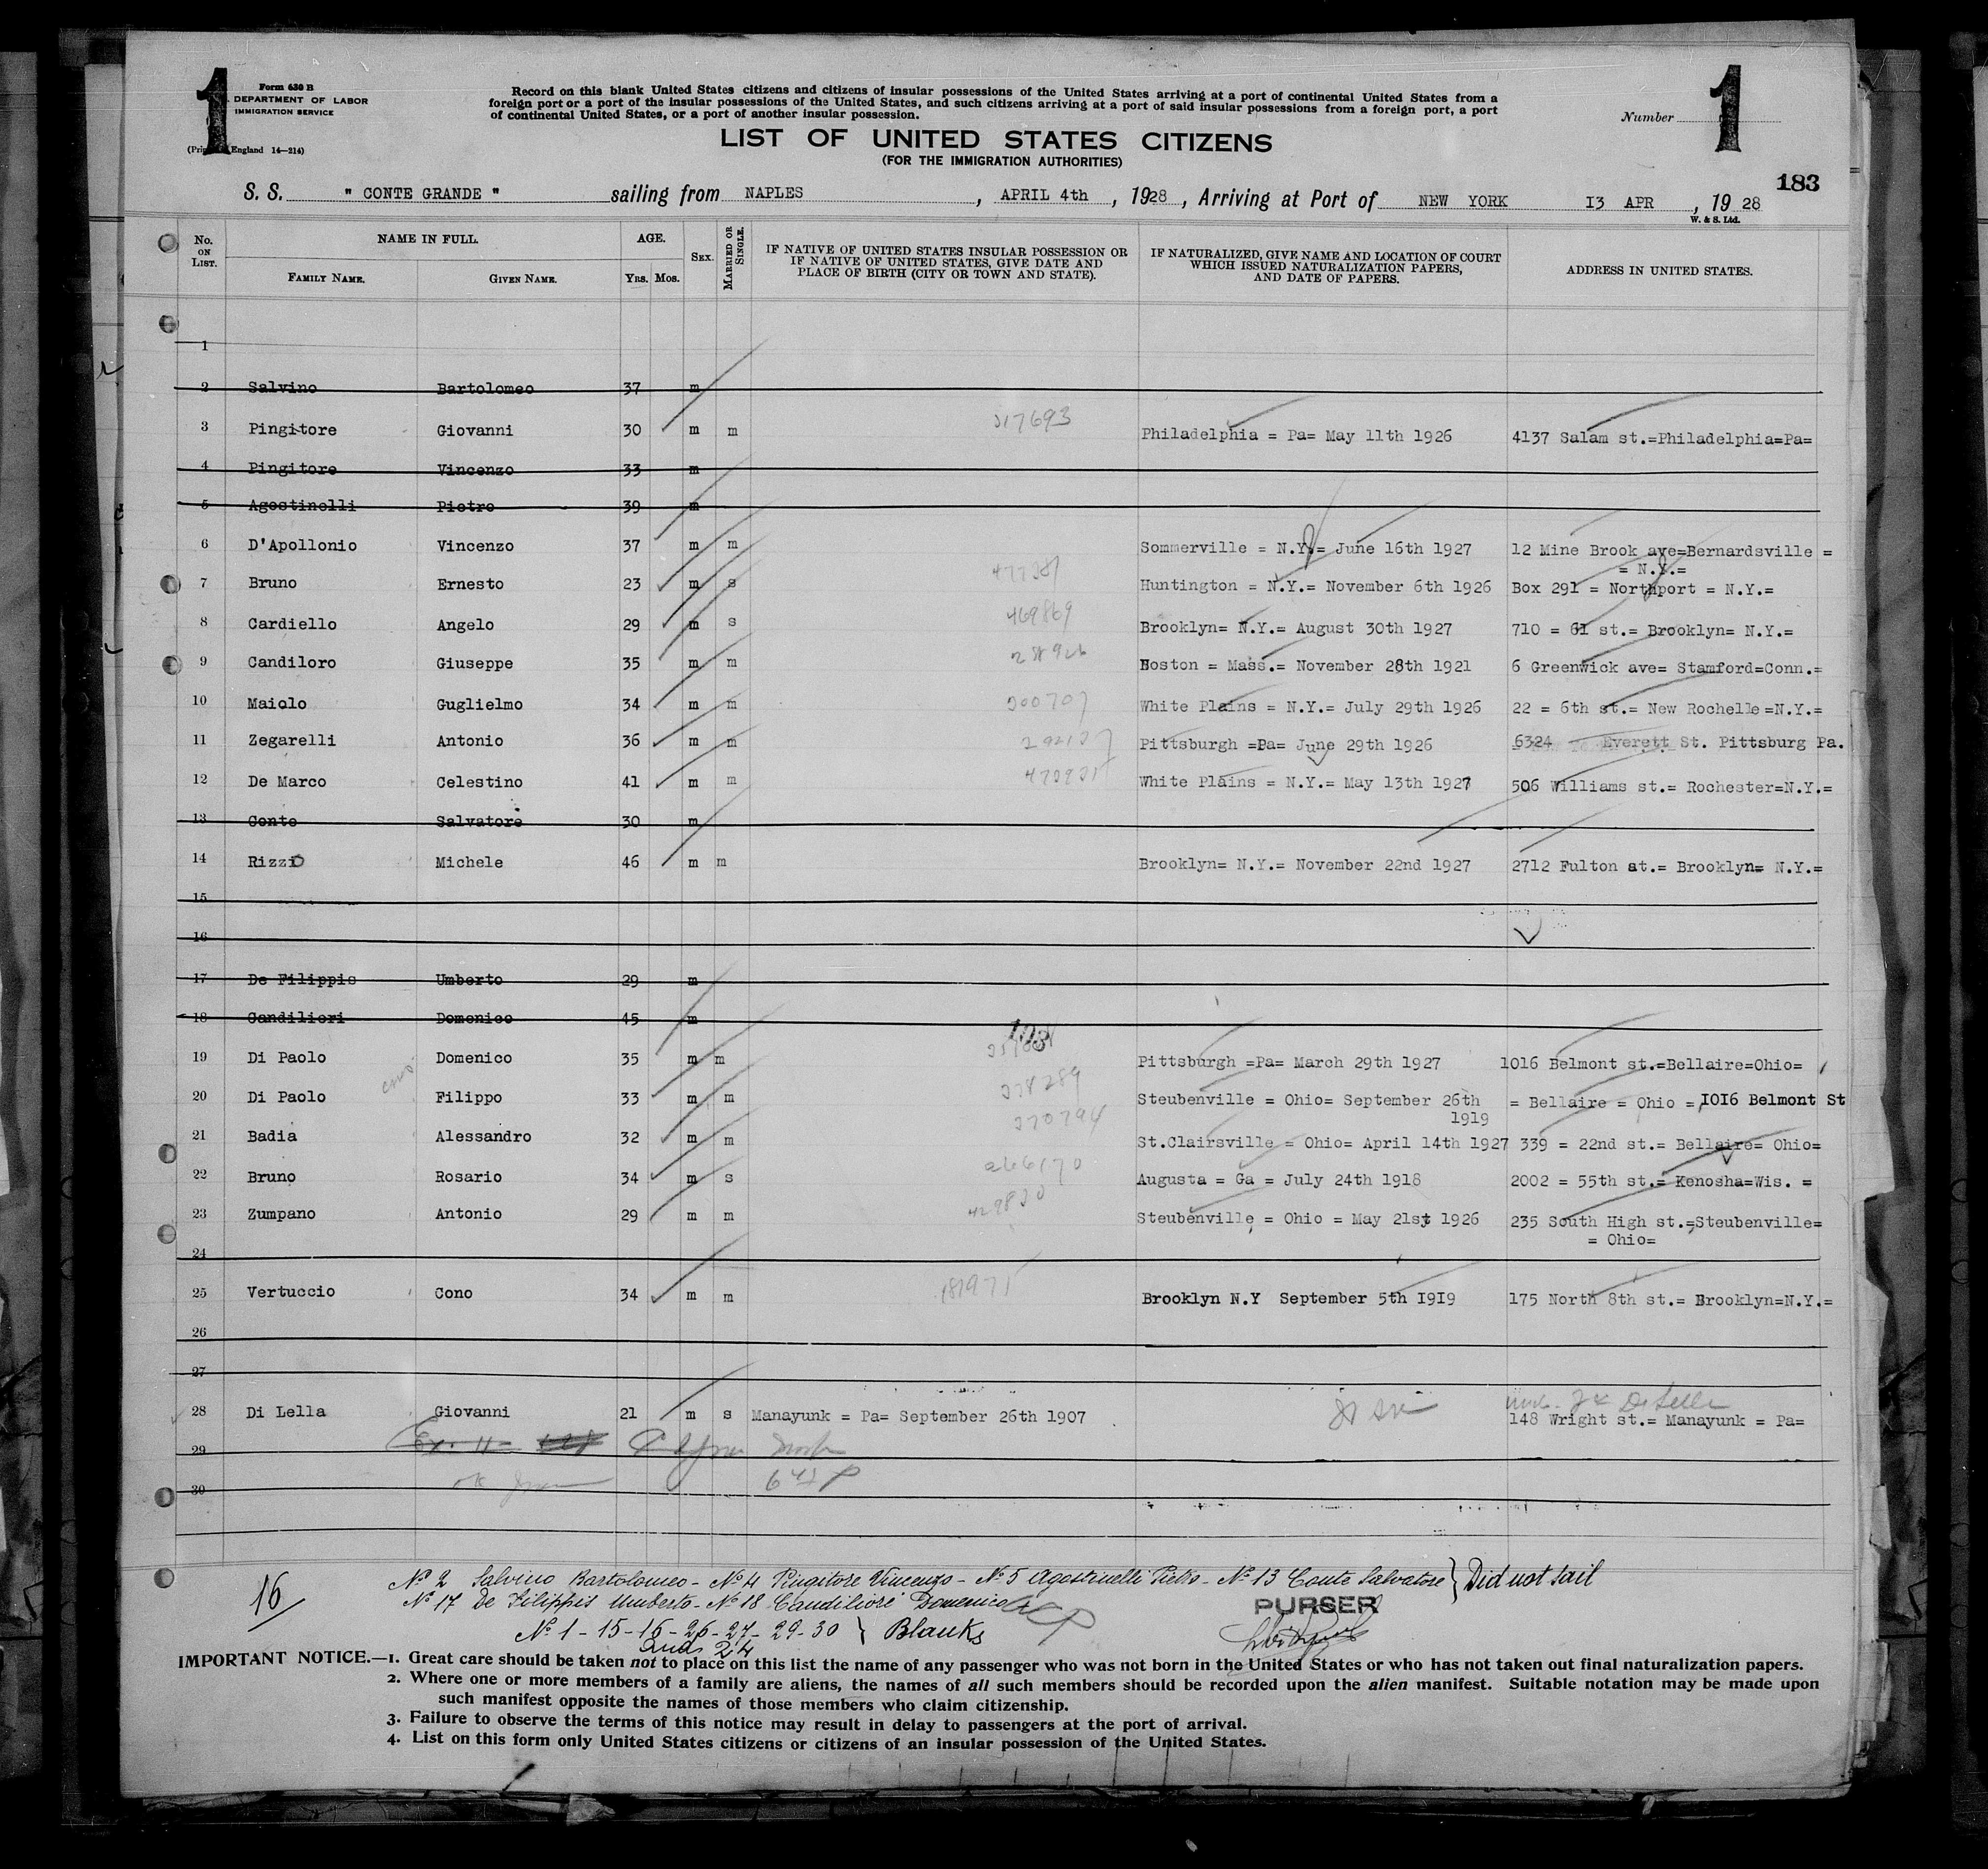 1
1
Form 630 B
U. S. DEPARTMENT OF LABOR
IMMIGRATION SERVICE
England 14—214)
Record on this blank United States citizens and citizens of insular possessions of the United States arriving at a port of continental United States from a
foreign port or a port of the insular possessions of the United States, and such citizens arriving at a port of said insular possessions from a foreign port, a port
of continental United States, or a port of another insular possession.
Number
LIST OF UNITED STATES CITIZENS
(FOR THE IMMIGRATION AUTHORITIES)
183
S. S. " CONTE GRANDE " sailing from NAPLES , APRIL 4th , 1928 , Arriving at Port of NEW YORK I3 APR , 19 28
W. & S. Ltd.
No. ON LIST. NAME IN FULL. AGE. SEX. MARRIED OR SINGLE. IF NATIVE OF UNITED STATES INSULAR POSSESSION OR IF NATIVE OF UNITED STATES, GIVE DATE AND PLACE OF BIRTH (CITY OR TOWN AND STATE). IF NATURALIZED, GIVE NAME AND LOCATION OF COURT WHICH ISSUED NATURALIZATION PAPERS, AND DATE OF PAPERS. ADDRESS IN UNITED STATES.
FAMILY NAME. GIVEN NAME. YRS. MOS.
1
2 Salvino Bartolomeo 37 m
3 Pingitore Giovanni 30 m m 317693 Philadelphia = Pa= May 11th 1926 4137 Salam st.=Philadelphia=Pa=
4 Pingitore Vincenzo 33 m
5 Agostinelli Pietro 39 m
6 D'Apollonio Vincenzo 37 m m Sommerville = N.Y.= June 16th 1927 12 Mine Brook ave=Bernardsville =
= N.Y.=
7 Bruno Ernesto 23 m s Huntington = N.Y.= November 6th 1926 Box 291 = Northport = N.Y.=
8 Cardiello Angelo 29 m s 469869 Brooklyn= N.Y.= August 30th 1927 710 = 61 st.= Brooklyn= N.Y.=
9 Candiloro Giuseppe 35 m m Boston = Mass.= November 28th 1921 6 Greenwick ave= Stamford=Conn.=
10 Maiolo Guglielmo 34 m m White Plains = N.Y.= July 29th 1926 22 = 6th st.= New Rochelle=N.Y.=
11 Zegarelli Antonio 36 m m Pittsburgh =Pa= June 29th 1926 6324 Everett St. Pittsburg Pa.
12 De Marco Celestino 41 m m White Plains = N.Y.= May 13th 1927 506 Williams st.= Rochester=N.Y.=
13 Conte Salvatore 30 m
14 Rizzo Michele 46 m m Brooklyn= N.Y.= November 22nd 1927 2712 Fulton at.= Brooklyn= N.Y.=
15
16
17 De Filippis Umberto 29 m
18 Candiliori Domenico 45 m
19 Di Paolo Domenico 35 m m Pittsburgh =Pa= March 29th 1927 1016 Belmont st.=Bellaire=Ohio=
20 Di Paolo Filippo 33 m m Steubenville = Ohio= September 26th = Bellaire = Ohio =,IOI6 Belmont St
1919
21 Badia Alessandro 32 m m 370794 St.Clairsville = Ohio= April 14th 1927 339 = 22nd st.= Bellaire= Ohio=
22 Bruno Rosario 34 m s 266170 Augusta = Ga = July 24th 1918 2002 = 55th st.= Kenosha=Wis. =
23 Zumpano Antonio 29 m m Steubenville = Ohio = May 21st 1926 235 South High st.=Steubenville=
= Ohio=
24
25 Vertuccio Cono 34 m m Brooklyn N.Y September 5th I9I9 175 North 8th st.= Brooklyn=N.Y.=
26
27
28 Di Lella Giovanni 21 m s Manayunk = Pa= September 26th 1907 148 Wright st.= Manayunk = Pa=
29
30
16
No 2 Salvino Bartolomeo - No 4 Pingitore Vincenzo - No 5 Agostinelli Pietro - No 13 Conte Salvatore } Did not sail
No 17 De Filippis Umberto - No 18 Candiliori Domenico
PURSER
No 1 - 15-16-26-27-29-30 } Blanks
and 24
IMPORTANT NOTICE.—1. Great care should be taken not to place on this list the name of any passenger who was not born in the United States or who has not taken out final naturalization papers.
2. Where one or more members of a family are aliens, the names of all such members should be recorded upon the alien manifest. Suitable notation may be made upon
such manifest opposite the names of those members who claim citizenship.
3. Failure to observe the terms of this notice may result in delay to passengers at the port of arrival.
4. List on this form only United States citizens or citizens of an insular possession of the United States.